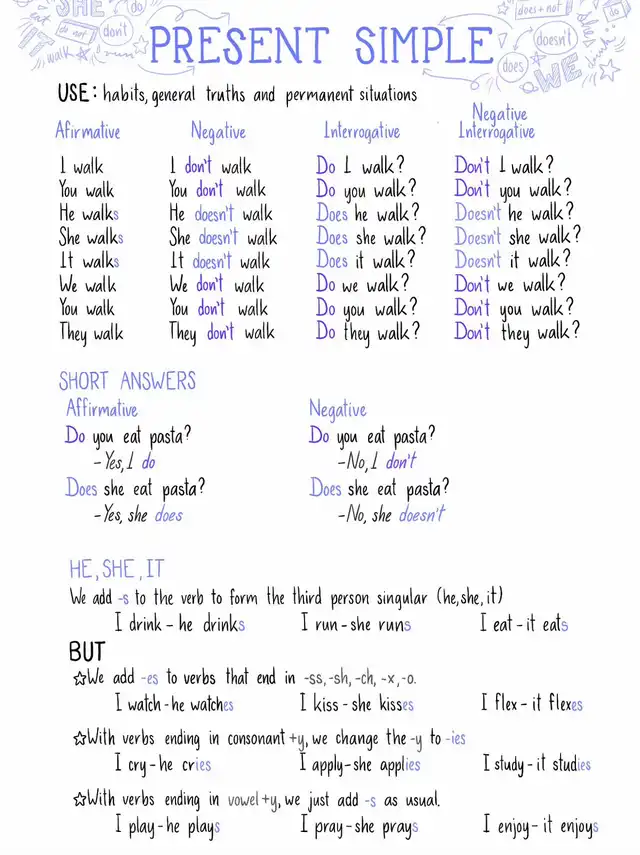 SHE
do
do not
don't
IT
walk
run
does + not
do
doesn't
does
WE
drink
SHE
PRESENT SIMPLE
USE: habits, general truths and permanent situations
Afirmative Negative Interrogative Negative Interrogative
I walk I don't walk Do I walk? Don't I walk?
You walk You don't walk Do you walk? Don't you walk?
He walks He doesn't walk Does he walk? Doesn't he walk?
She walks She doesn't walk Does she walk? Doesn't she walk?
It walks It doesn't walk Does it walk? Doesn't it walk?
We walk We don't walk Do we walk? Don't we walk?
You walk You don't walk Do you walk? Don't you walk?
They walk They don't walk Do they walk? Don't they walk?
SHORT ANSWERS
Affirmative Negative
Do you eat pasta? Do you eat pasta?
-Yes, I do -No, I don't
Does she eat pasta? Does she eat pasta?
-Yes, she does -No, she doesn't
HE, SHE, IT
We add -s to the verb to form the third person singular (he, she, it)
I drink - he drinks I run - she runs I eat - it eats
BUT
☆We add -es to verbs that end in -ss, -sh, -ch, -x, -o.
I watch - he watches I kiss - she kisses I flex - it flexes
☆With verbs ending in consonant +y, we change the -y to -ies
I cry - he cries I apply - she applies I study - it studies
☆With verbs ending in vowel +y, we just add -s as usual.
I play - he plays I pray - she prays I enjoy - it enjoys